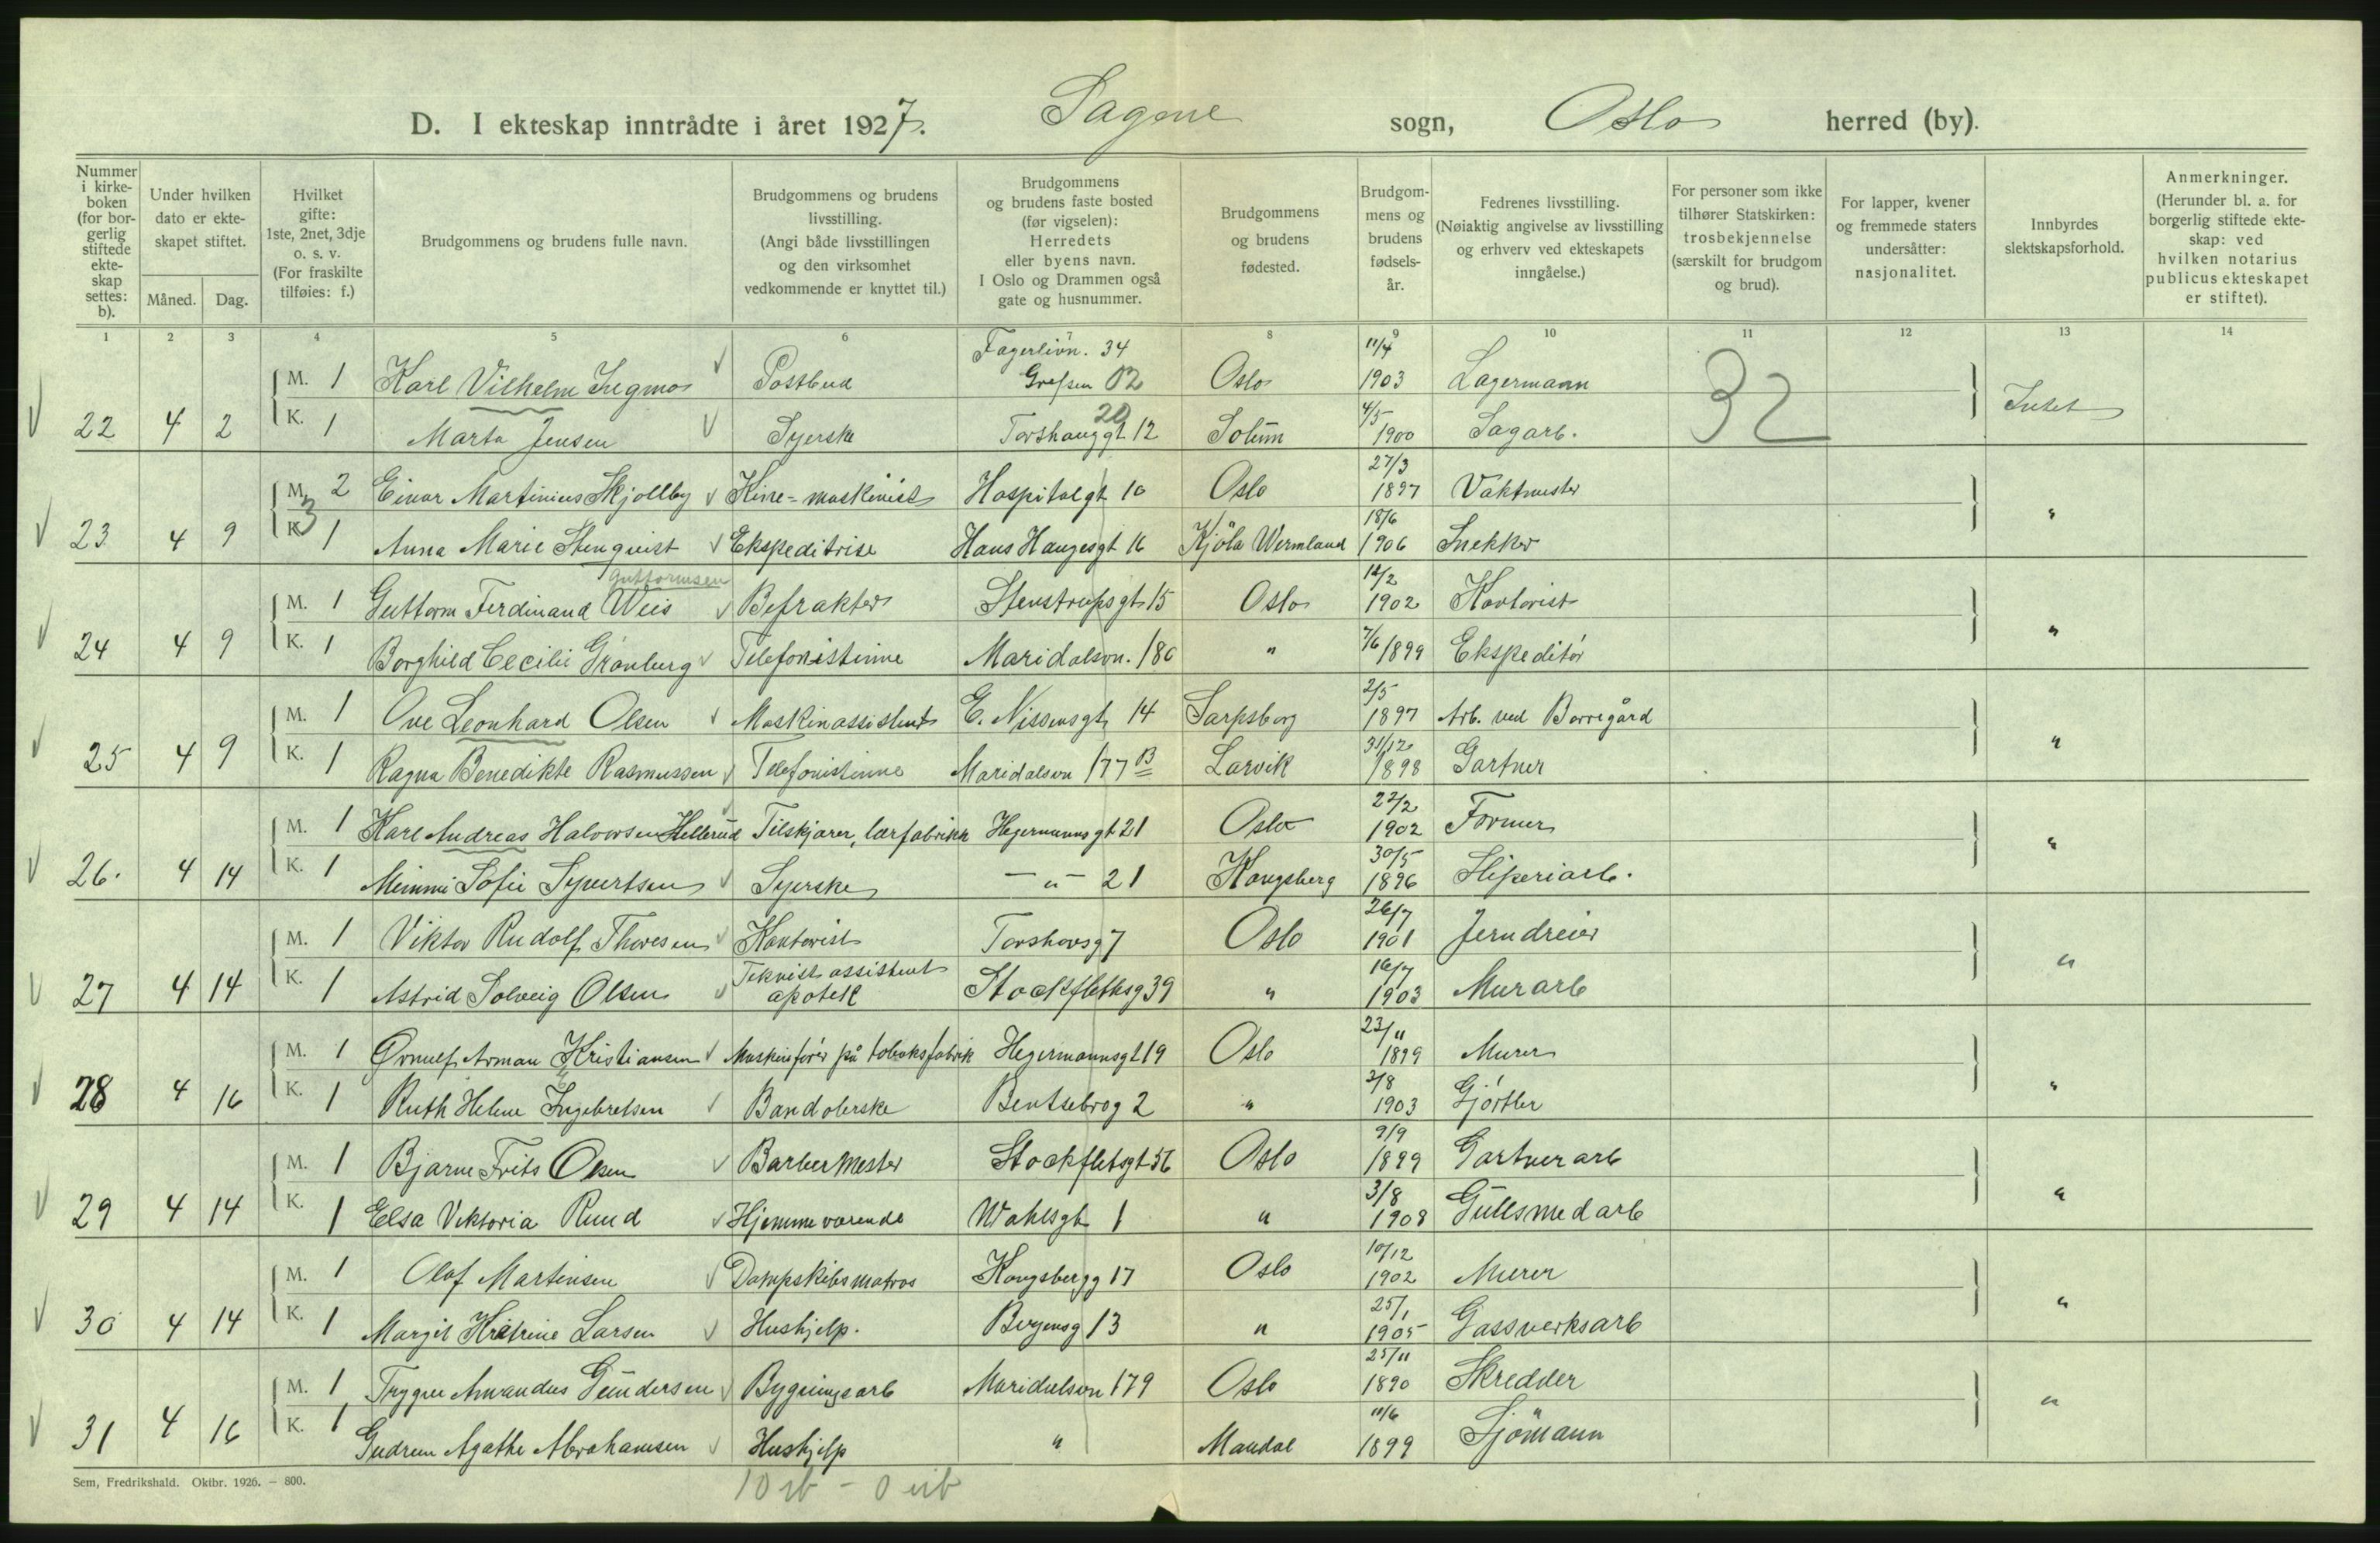 D. I ekteskap inntrådte i året 1927. Sagene sogn, Oslo herred (by).
Nummer i kirke-boken (for bor-gerlig stiftede ekte-skap settes: b).
Under hvilken dato er ekte-skapet stiftet.
Måned. Dag.
Hvilket gifte: 1ste, 2net, 3dje o. s. v. (For fraskilte tilføies: f.)
Brudgommens og brudens fulle navn.
Brudgommens og brudens livsstilling. (Angi både livsstillingen og den virksomhet vedkommende er knyttet til.)
Brudgommens og brudens faste bosted (før vigselen): Herredets eller byens navn. I Oslo og Drammen også gate og husnummer.
Brudgommens og brudens fødested.
Brudgom-mens og brudens fødsels-år.
Fedrenes livsstilling. (Nøiaktig angivelse av livsstilling og erhverv ved ekteskapets inngåelse.)
For personer som ikke tilhører Statskirken: trosbekjennelse (særskilt for brudgom og brud).
For lapper, kvener og fremmede staters undersåtter: nasjonalitet.
Innbyrdes slektskapsforhold.
Anmerkninger. (Herunder bl. a. for borgerlig stiftede ekte-skap: ved hvilken notarius publicus ekteskapet er stiftet).
1 2 3 4 5 6 7 8 9 10 11 12 13 14
Fagerlivn. 34 11/4
M. 1 Karl Vilhelm Ingmo Postbud Grefsen 02 Oslo 1903 Lagermann 32 Intet
22 4 2 K. 1 Marta Jensen Syerske Torshauggt 12 20 Solum 4/5 1900 Sagarb.
M. 2 Einar Martinius Skjollby Kine-maskinist Hospitalgt 10 Oslo 27/3 1897 Vaktmester
23 4 9 K. 3 1 Anna Marie Stenqvist Ekspeditrise Hans Haugesgt 16 Kjöla Wermland 18/6 1906 Snekker "
Guttormsen
M. 1 Guttorm Ferdinand Weis Befrakter Stenstrupsgt 15 Oslo 12/2 1902 Kontorist
24 4 9 K. 1 Borghild Cecilie Grönberg Telefonistinne Maridalsvn. 180 " 7/6 1899 Ekspeditör "
M. 1 Ove Leonhard Olsen Maskinassistent E. Nissensgt 14 Sarpsborg 2/5 1897 Arb. ved Borregård
25 4 9 K. 1 Ragna Benedikte Rasmussen Telefonistinne Maridalsvn 177 B Larvik 31/12 1898 Gartner "
M. 1 Karl Andreas Halvorsen Hellerud Tilskjærer, lærfabrikk Hegermannsgt 21 Oslo 22/2 1902 Former
26. 4 14 K. 1 Mimmi Sofie Syvertsen Syerske — " — 21 Kongsberg 30/5 1896 Sliperiarb. "
M. 1 Viktor Rudolf Thoresen Kontorist Torshovsg 7 Oslo 26/7 1901 Jerndreier
27 4 14 K. 1 Astrid Solveig Olsen Teknist assistent apotek Stockflethsg 39 " 16/7 1903 Murarb "
M. 1 Ørnulf Arman Kristiansen Maskinförer på tobaksfabrik Hegermannsgt 19 Oslo 23/11 1899 Murer
28 4 16 K. 1 Ruth Helene Ingebretsen Bandolerske Bentsebrog 2 " 2/8 1903 Gjörtler "
M. 1 Bjarne Frits Olsen Barbermester Stockfletsgt 56 Oslo 9/9 1899 Gartnerarb
29 4 14 K. 1 Elsa Viktoria Ruud Hjemmeværende Wahlsgt 1 " 3/8 1908 Gullsmedarb "
M. 1 Olaf Martinsen Dampskibsmatros Kongsbergg 17 Oslo 10/12 1902 Murer
30 4 14 K. 1 Margit Katrine Larsen Hushjelp. Bergensg 13 " 25/1 1905 Gassverksarb "
M. 1 Trygve Amandus Gundersen Bygningsarb Maridalsvn 179 Oslo 25/11 1890 Skredder
31 4 16 K. 1 Gudrun Agathe Abrahamsen Hushjelp " Mandal 11/6 1899 Sjömann "
Sem, Fredrikshald. Oktbr. 1926. — 800.
10 rb - 0 ub